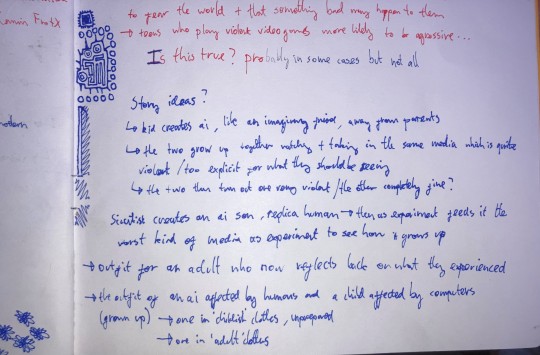 to fear the world + that something bad may happen to them
→ teens who play violent videogames more likely to be agressive...
Is this true? probably in some cases but not all
Story ideas?
↳ kid creates ai, like an imaginary friend, away from parents
↳ the two grow up together watching + taking in the same media which is quite
violent / too explicit for what they should be seeing
↳ the two then turn out one very violent / the other completely fine?
Scientist creates an ai son, replica human → then as experiment feeds it the
worst kind of media as experiment to see how it grows up
→ outfit for an adult who now reflects back on what they experienced
→ the outfit of an ai affected by humans and a child affected by computers
(grown up) → one in 'childish' clothes, unprepared
→ one in 'adult' clothes